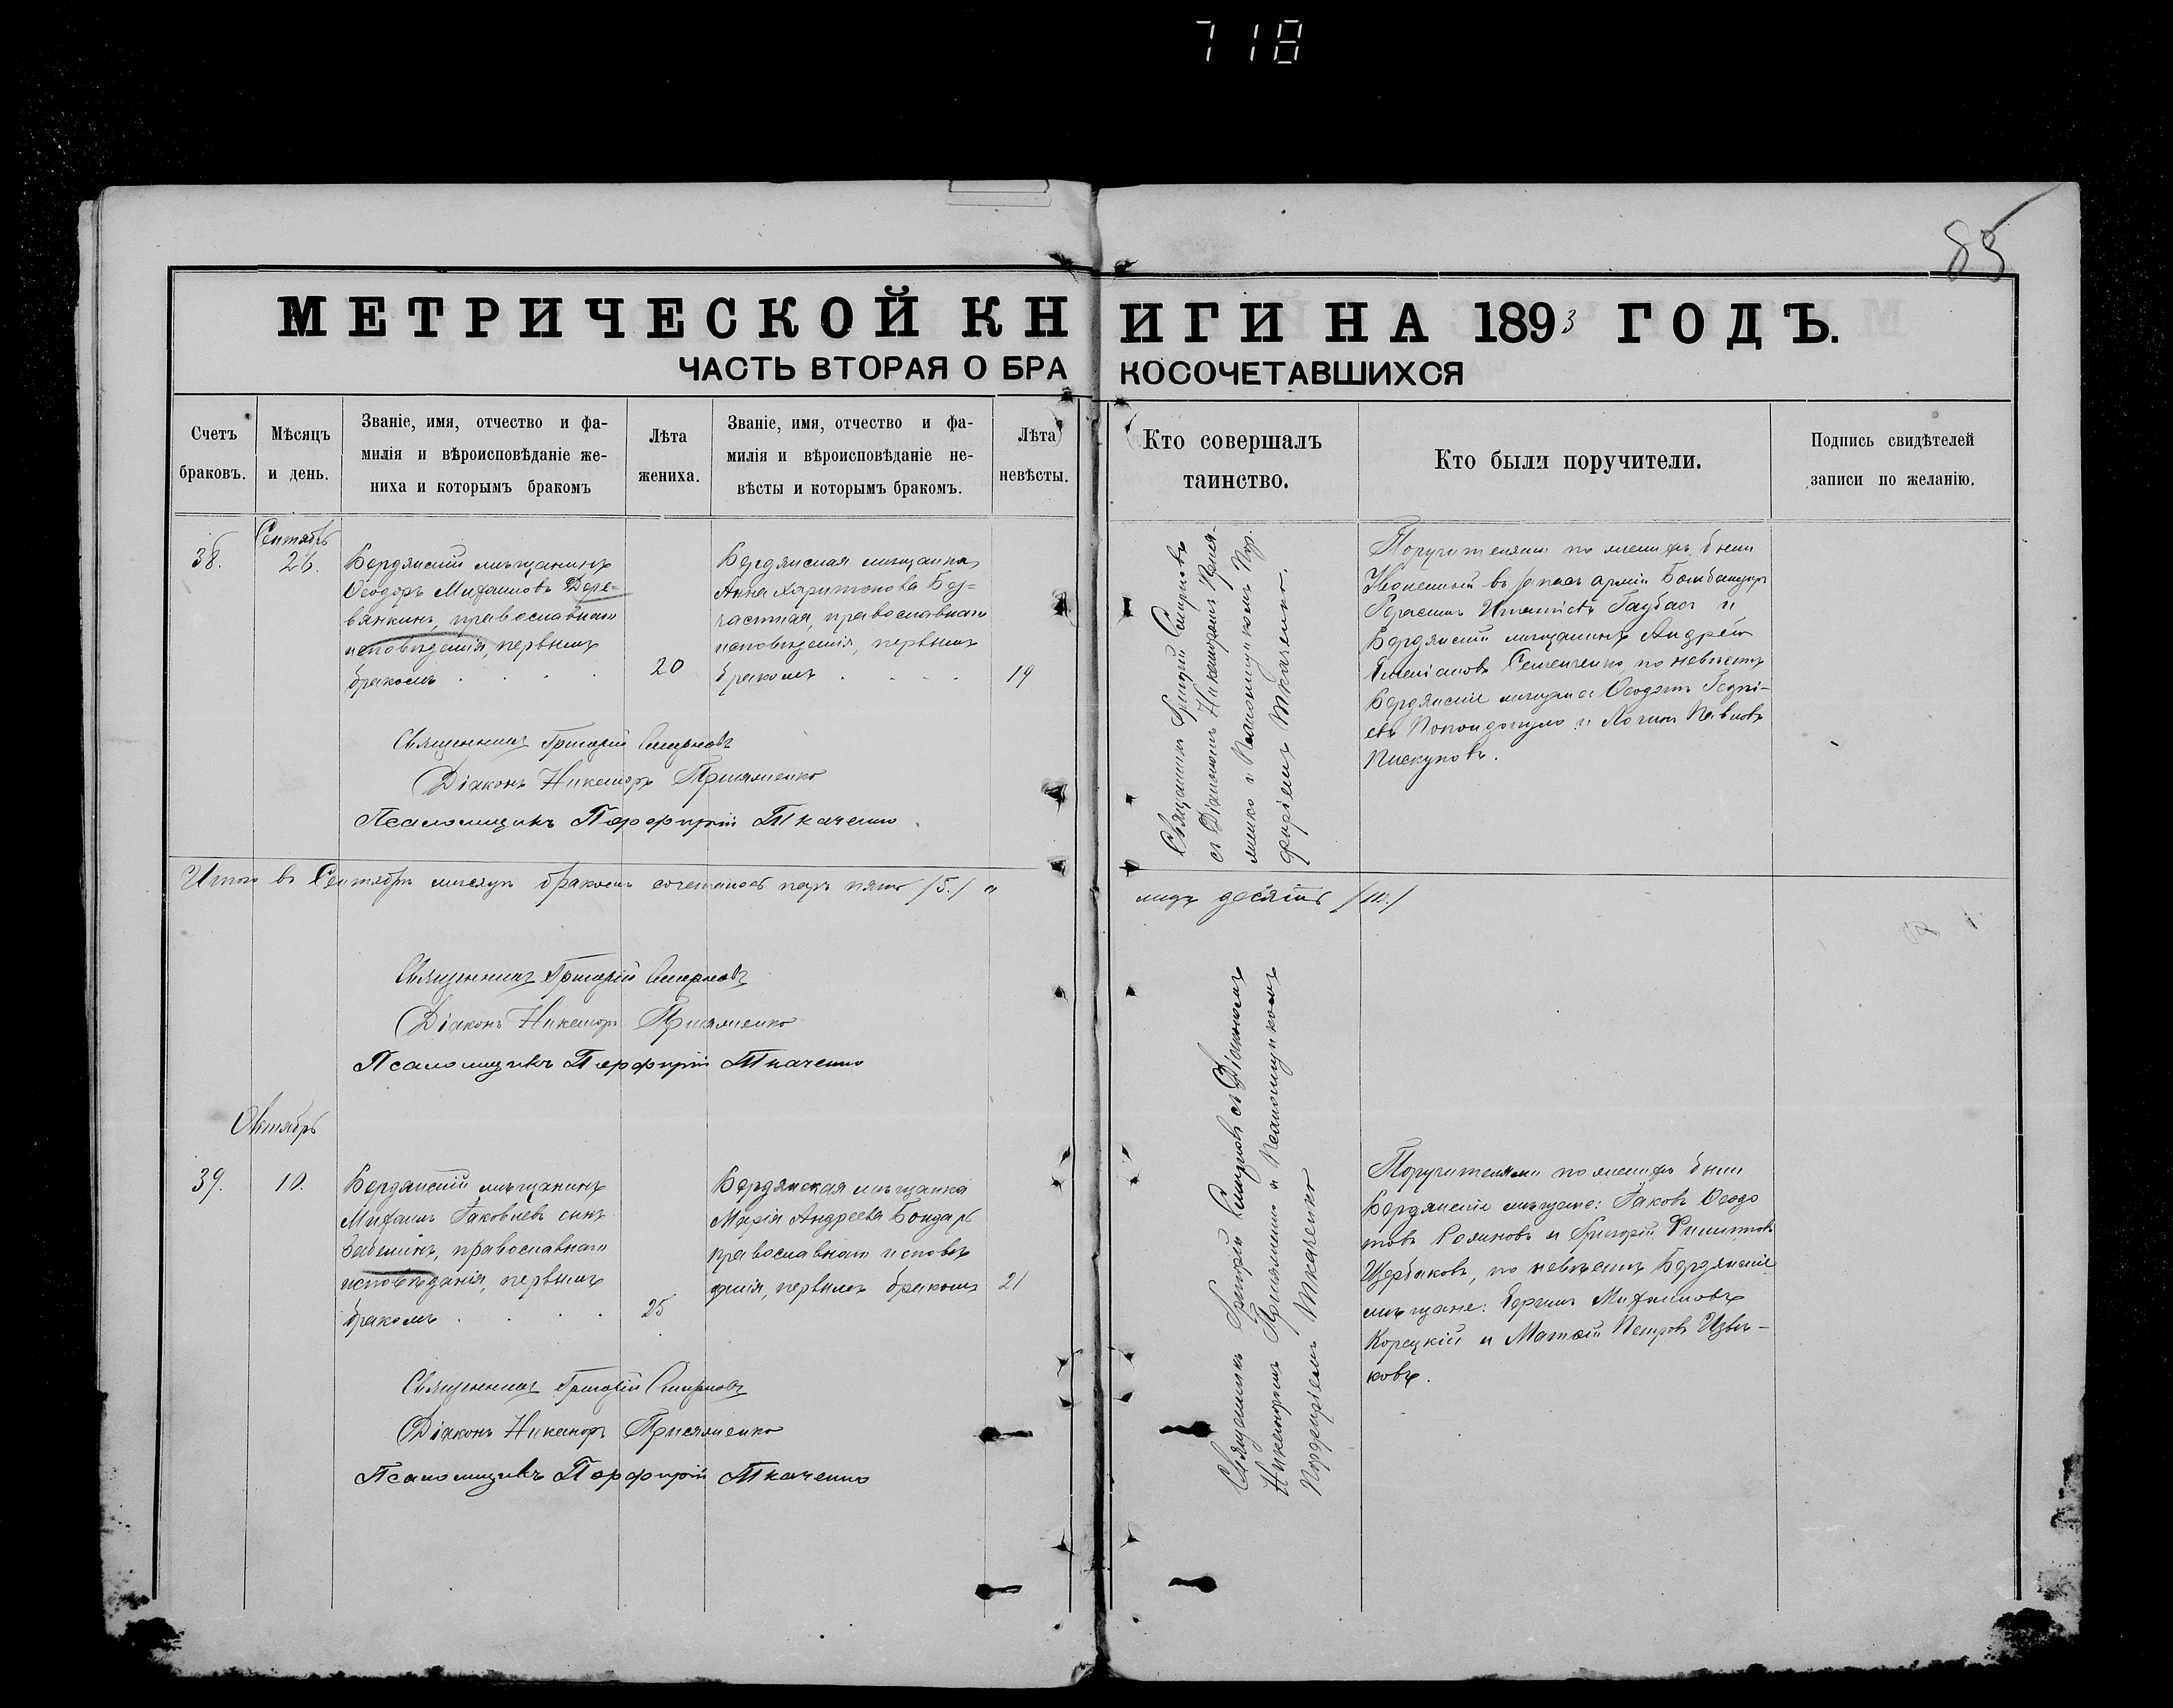 718
85
МЕТРИЧЕСКОЙ КНИГИ НА 1893 ГОДЪ.
ЧАСТЬ ВТОРАЯ О БРАКОСОЧЕТАВШИХСЯ
Счетъ
браковъ.
Мѣсяцъ
и день.
Званіе, имя, отчество и фа-
милія и вѣроисповѣданіе же-
ниха и которымъ бракомъ
Лѣта
жениха.
Званіе, имя, отчество и фа-
милія и вѣроисповѣданіе не-
вѣсты и которымъ бракомъ.
Лѣта
невѣсты.
Кто совершалъ
таинство.
Кто были поручители.
Подпись свидѣтелей
записи по желанію.
38.
Сентябрь
26.
Бердянскій мѣщанинъ
Ѳеодоръ Михаиловъ Дере-
вянкинъ, православнаго
исповѣданія, первымъ
бракомъ
20
Бердянская мѣщанка
Анна Харитонова Без-
частная, православнаго
исповѣданія, первымъ
бракомъ
19
Священникъ Григорій Смирновъ
съ Діакономъ Никаноромъ Прися-
женко и Псаломщикомъ Пор-
фиріемъ Ткаченко.
Поручителями по женихѣ были
Уволенный въ запасъ арміи Бомбардиръ
Герасимъ Игнатіевъ и
Бердянскій мѣщанинъ Андрей
Семенченко, по невѣстѣ
Бердянскіе мѣщане Ѳеодотъ
и Логинъ Павловъ
Пискуновъ.
Священникъ Григорій Смирновъ
Діаконъ Никаноръ Присяженко
Псаломщикъ Порфирій Ткаченко
Итого въ Сентябрѣ мѣсяцѣ бракомъ сочеталось паръ пять /5./ а
лицъ десять /10./
Священникъ Григорій Смирновъ
Діаконъ Никаноръ Присяженко
Псаломщикъ Порфирій Ткаченко
Октябрь
39.
10.
Бердянскій мѣщанинъ
Михаилъ Іаковлевъ сынъ
православнаго
исповѣданія, первымъ
бракомъ
25
Бердянская мѣщанка
Марія Андреева Бондарь
православнаго исповѣ
данія, первымъ бракомъ
21
Священникъ Григорій Смирновъ съ Діакономъ
Никаноромъ Присяженко и Псаломщикомъ
Порфиріемъ Ткаченко
Поручителями по женихѣ были
Бердянскіе мѣщане: Іаковъ Ѳеодо
товъ и Григорій Филиповъ
Щербаковъ, по невѣстѣ Бердянскіе
мѣщане: Михаиловъ
Корецкій и Матѳей Петровъ Извѣ-
ковъ.
Священникъ Григорій Смирновъ
Діаконъ Никаноръ Присяженко
Псаломщикъ Порфирій Ткаченко